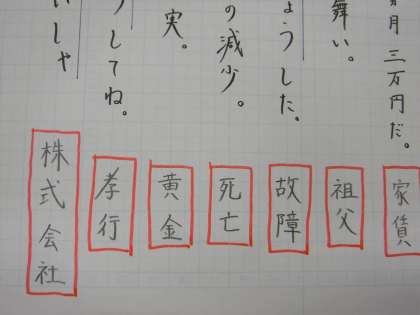 月三万円だ。
家賃
舞い。
祖父
ょうした。
故障
の減少。
死亡
実。
黄金
うしてね。
孝行
いしゃ
株式会社